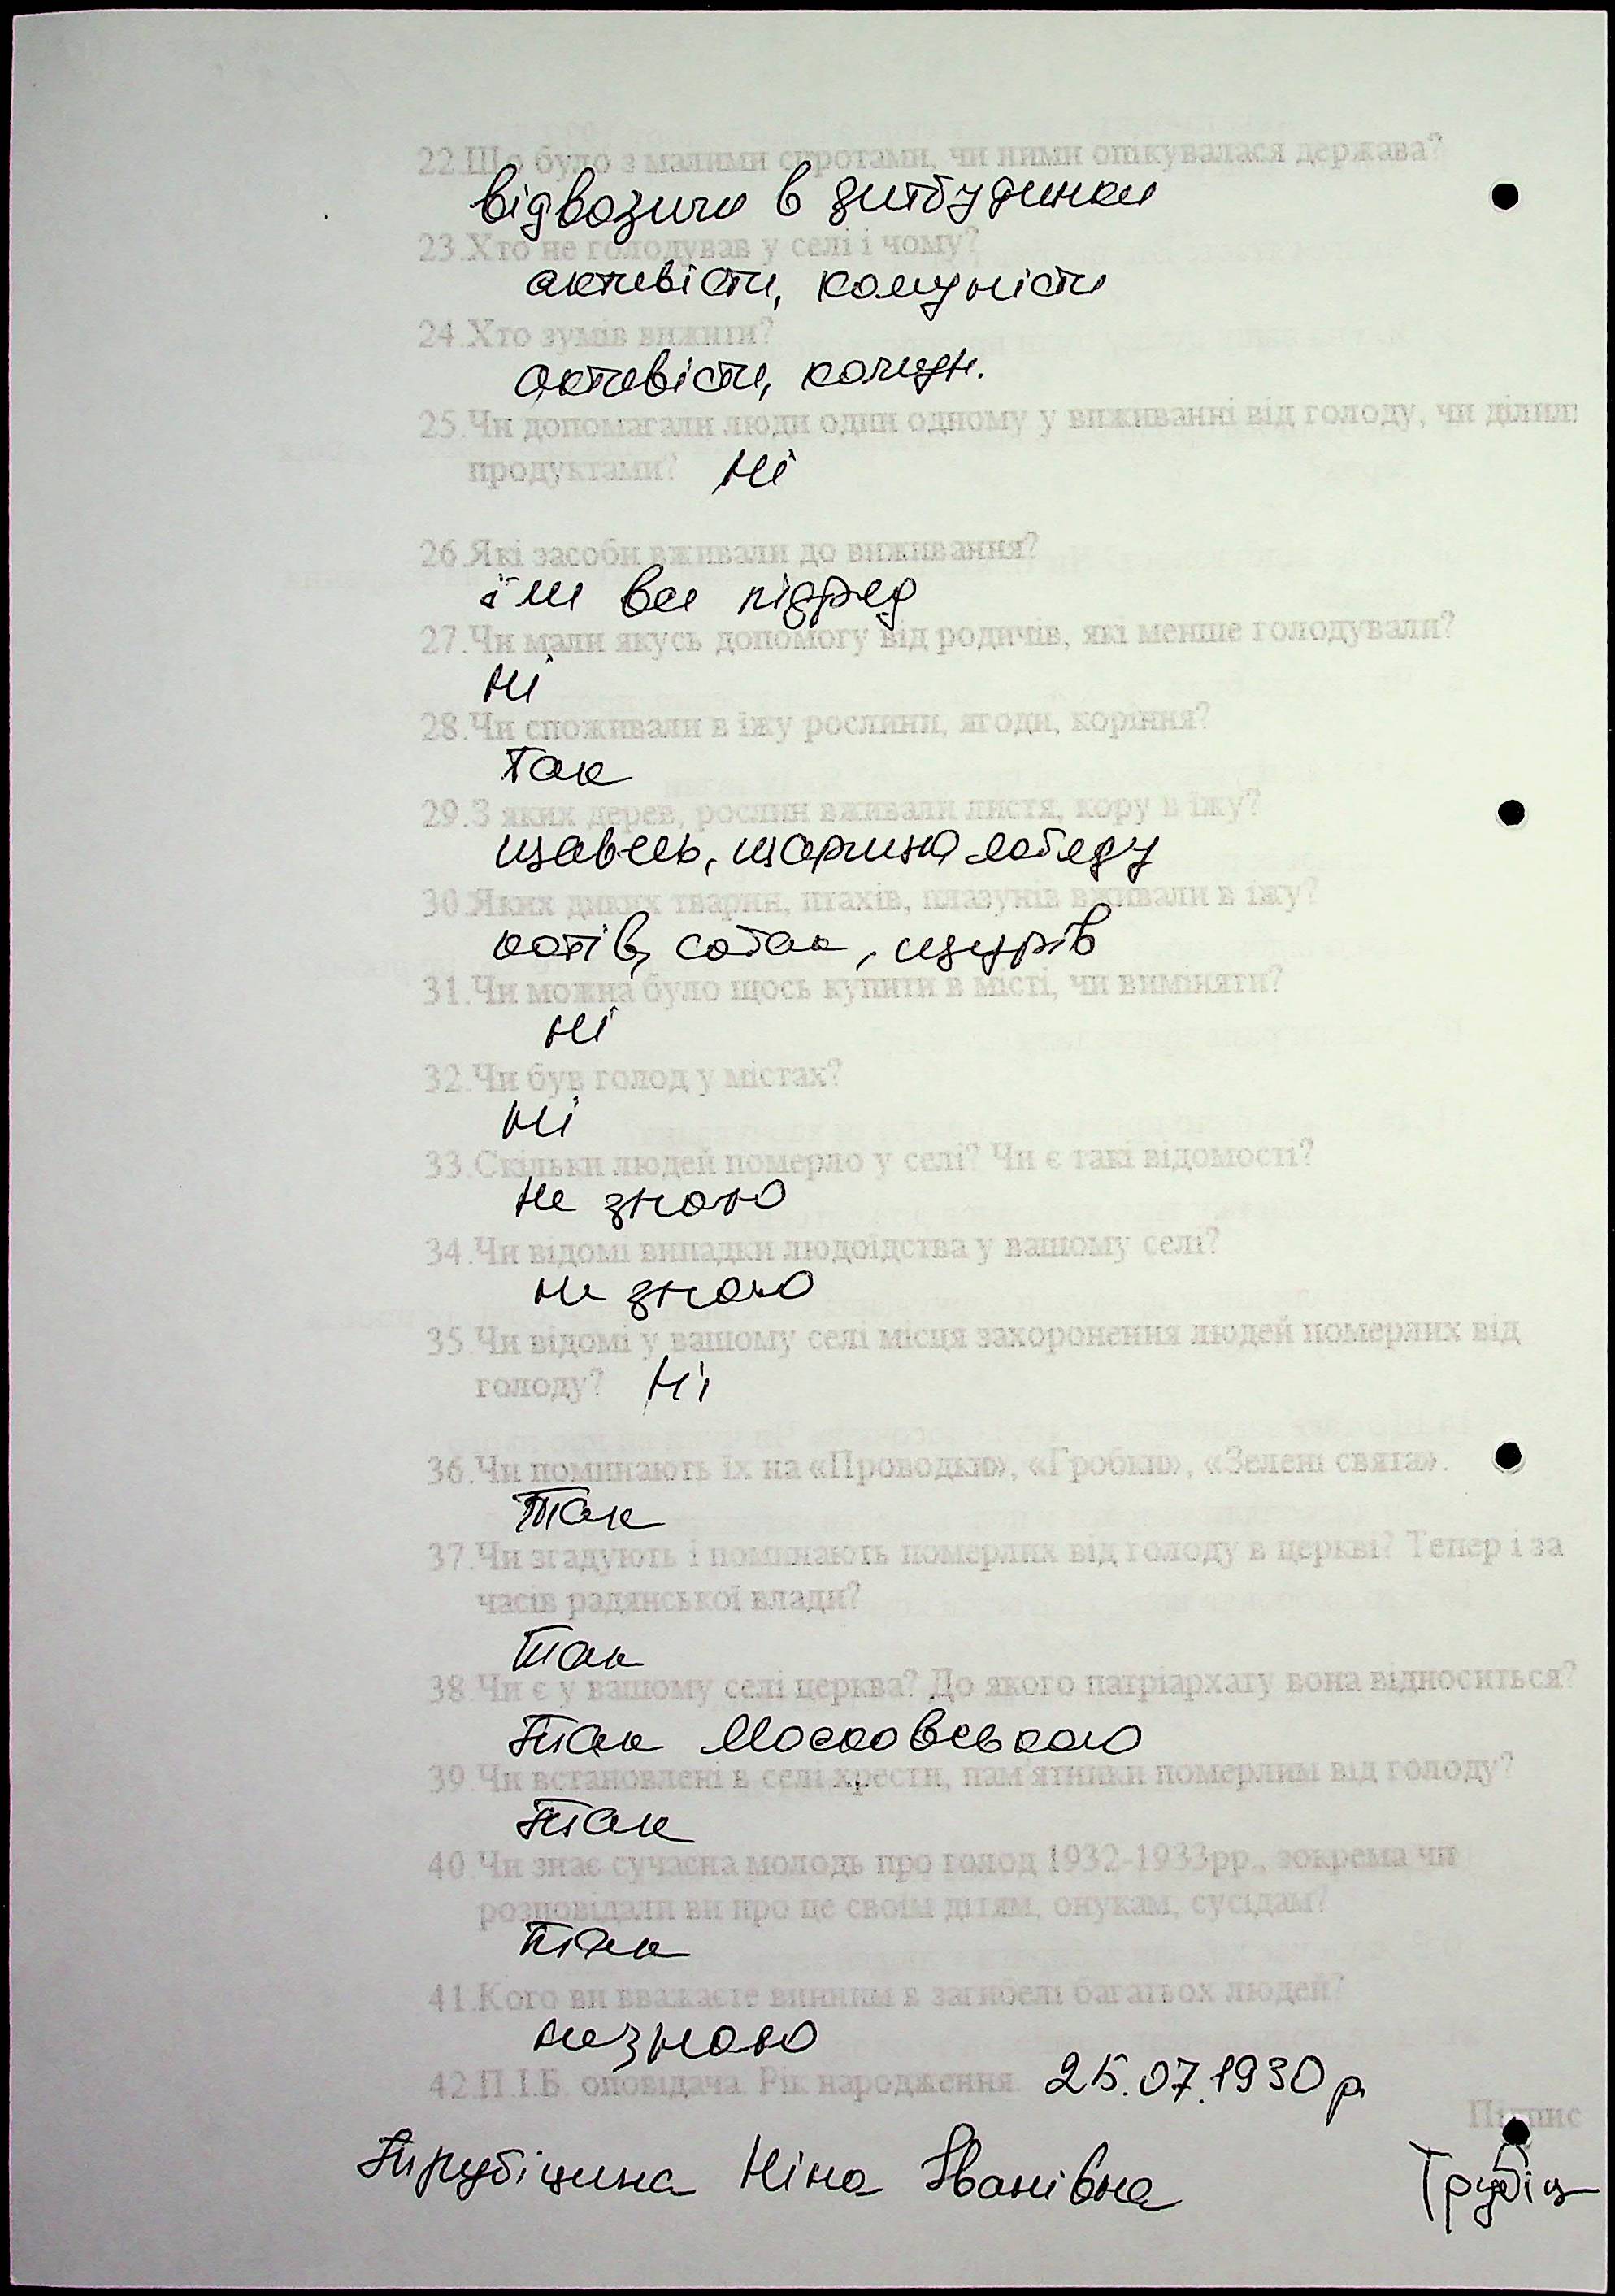 22.Що було з малими сиротами, чи ними опікувалася держава?
відвозили в дитбудинки
23.Хто не голодував у селі і чому?
активісти, комуністи
24.Хто зумів вижити?
активісти, комун.
25.Чи допомагали люди один одному у виживанні від голоду, чи ділили
продуктами? Ні
26.Які засоби вживали до виживання?
їли все підряд
27.Чи мали якусь допомогу від родичів, які менше голодували?
Ні
28.Чи споживали в їжу рослини, ягоди, коріння?
Так
29.З яких дерев, рослин вживали листя, кору в їжу?
щавель, лободу
30.Яких диких тварин, птахів, плазунів вживали в їжу?
котів, собак, щурів
31.Чи можна було щось купити в місті, чи виміняти?
Ні
32.Чи був голод у містах?
Ні
33.Скільки людей померло у селі? Чи є такі відомості?
Не знаю
34.Чи відомі випадки людоїдства у вашому селі?
не знаю
35.Чи відомі у вашому селі місця захоронення людей померлих від
голоду? Ні
36.Чи поминають їх на «Проводки», «Гробки», «Зелені свята».
Так
37.Чи згадують і поминають померлих від голоду в церкві? Тепер і за
часів радянської влади?
Так
38.Чи є у вашому селі церква? До якого патріархату вона відноситься?
Так Московського
39.Чи встановлені в селі хрести, пам'ятники померлим від голоду?
Так
40.Чи знає сучасна молодь про голод 1932-1933рр., зокрема чи
розповідали ви про це своїм дітям, онукам, сусідам?
Так
41.Кого ви вважаєте винним в загибелі багатьох людей?
незнаю
42.П.І.Б. оповідача. Рік народження. 25.07.1930 р.
Підпис
Трубіцина Ніна Іванівна Трубіц